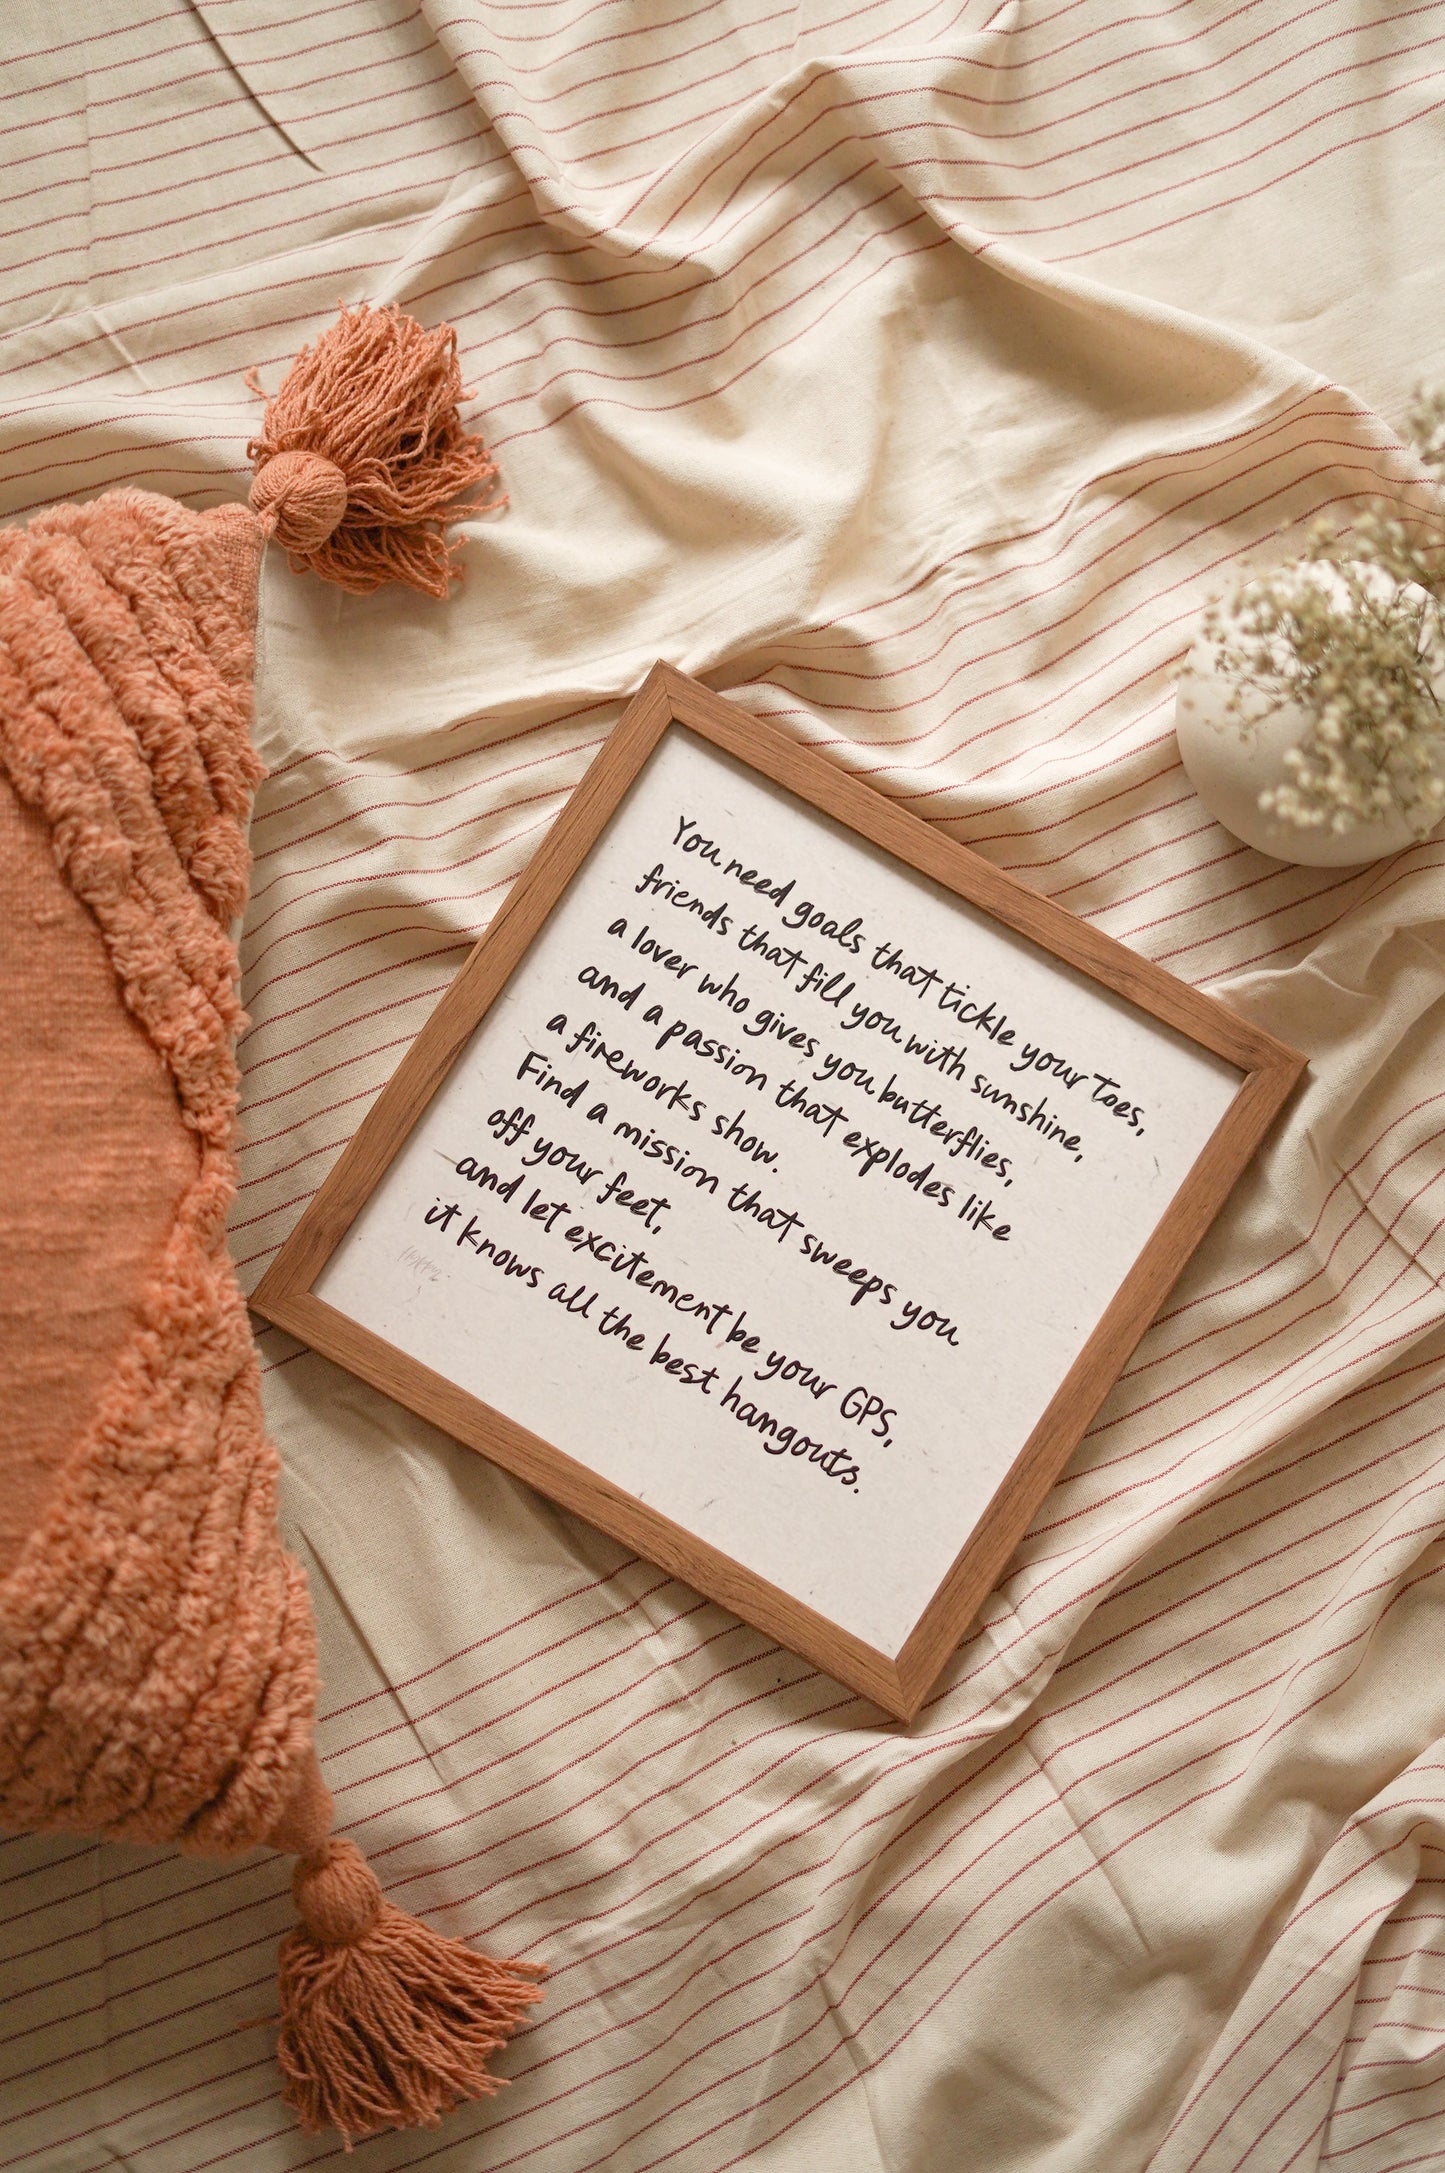 You need goals that tickle your toes,
friends that fill you with sunshine,
a lover who gives you butterflies,
and a passion that explodes like
a fireworks show.
Find a mission that sweeps you
off your feet,
and let excitement be your GPS,
it knows all the best hangouts.